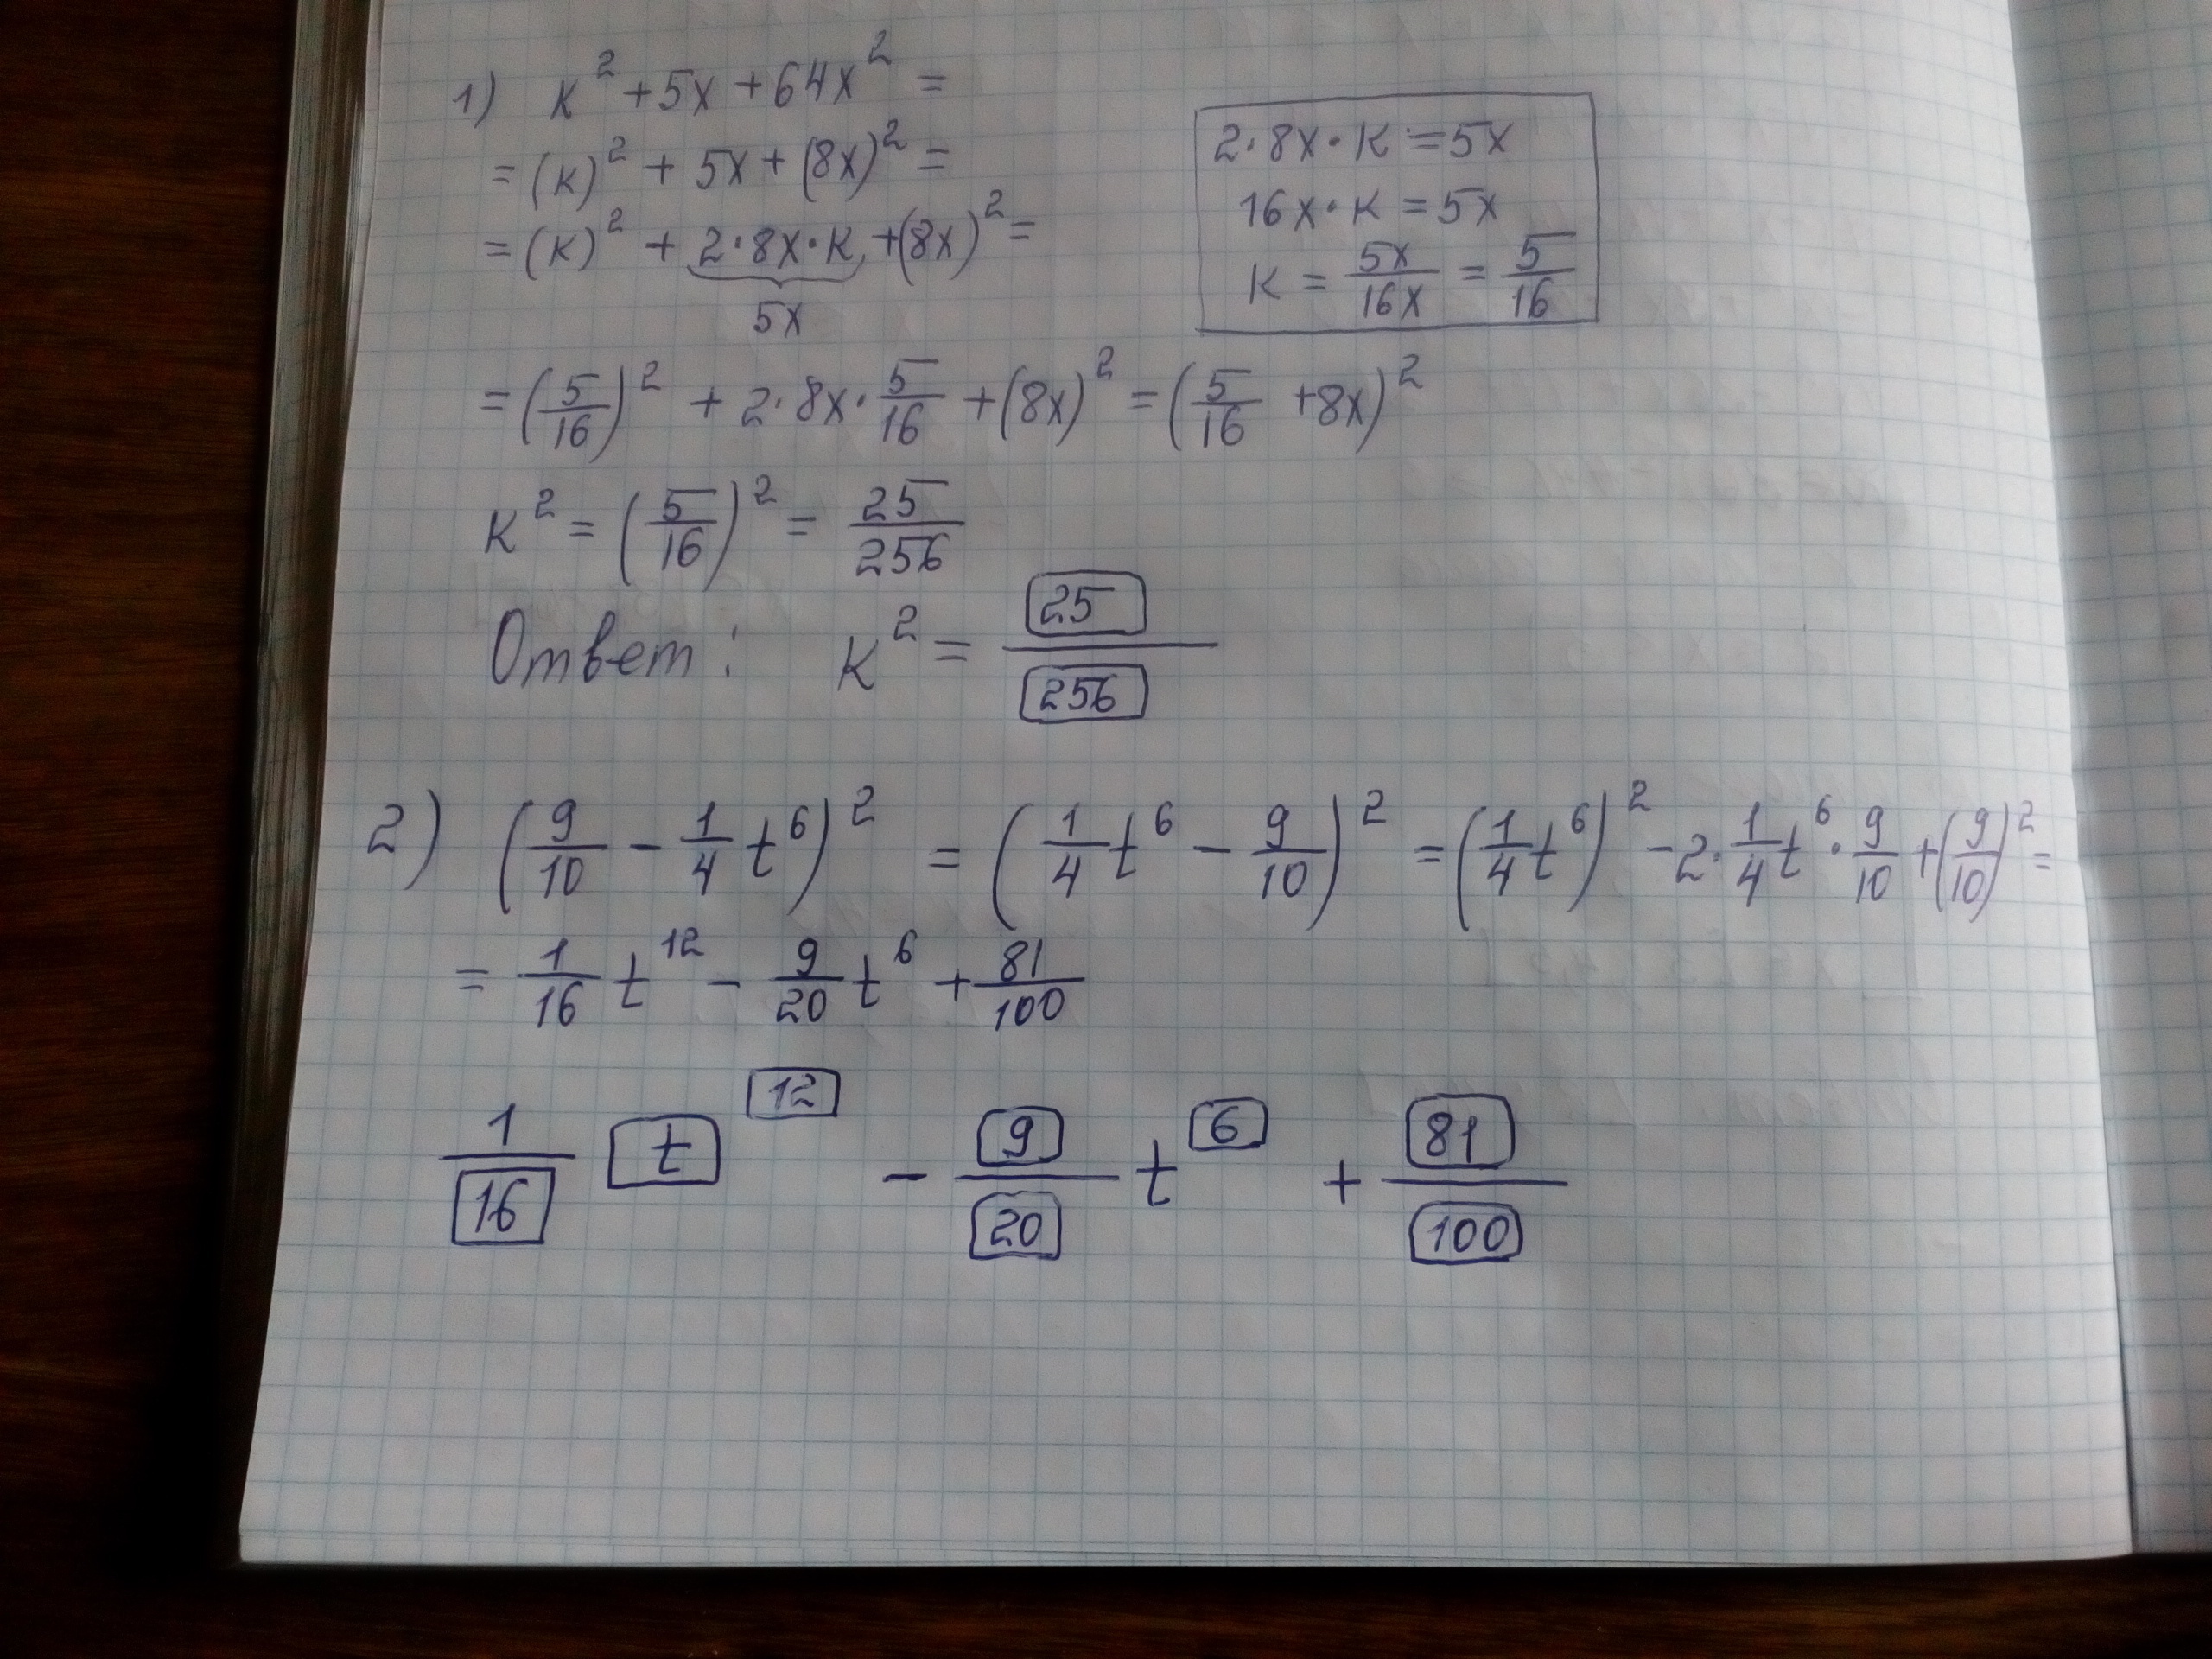 1) к² + 5x + 64x² =
= (к)² + 5x + (8x)² =
= (к)² + 2·8x·к + (8x)² =
5x
2·8x·к = 5x
16x·к = 5x
к = 5x/16x = 5/16
= (5/16)² + 2·8x·5/16 + (8x)² = (5/16 + 8x)²
к² = (5/16)² = 25/256
Ответ: к² = 25/256
2) (9/10 - 1/4 t⁶)² = (1/4 t⁶ - 9/10)² = (1/4 t⁶)² - 2·1/4 t⁶·9/10 + (9/10)² =
= 1/16 t¹² - 9/20 t⁶ + 81/100
1/16 t¹² - 9/20 t⁶ + 81/100